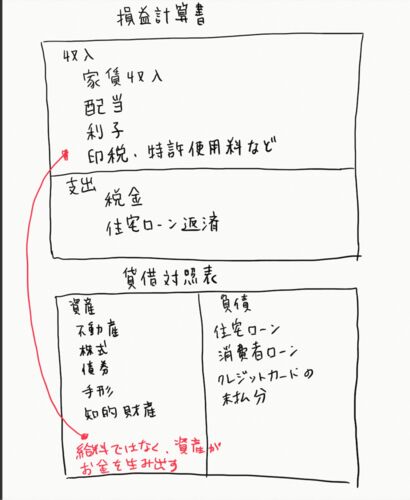 損益計算書
収入
家賃収入
配当
利子
印税、特許使用料など
支出
税金
住宅ローン返済
貸借対照表
資産
不動産
株式
債券
手形
知的財産
給料ではなく、資産が
お金を生み出す
負債
住宅ローン
消費者ローン
クレジットカードの
未払分